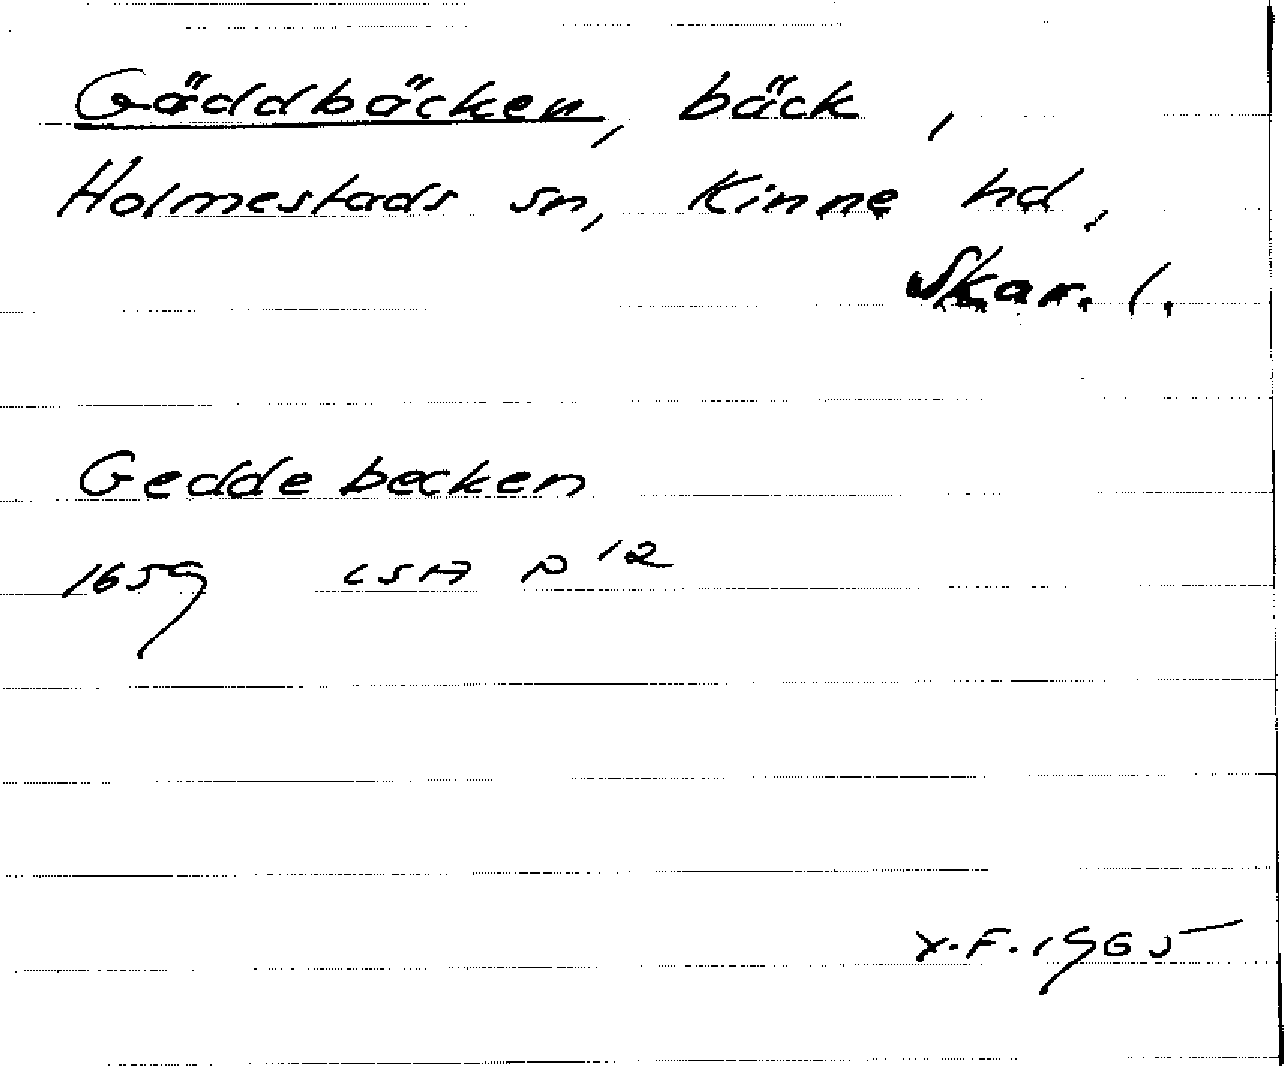 Gäddbäcken, bäck,
Holmestads sn, Kinne hd,
Skar. l.
Geddebecken
1659 LSA P 12
Y.F. 1965